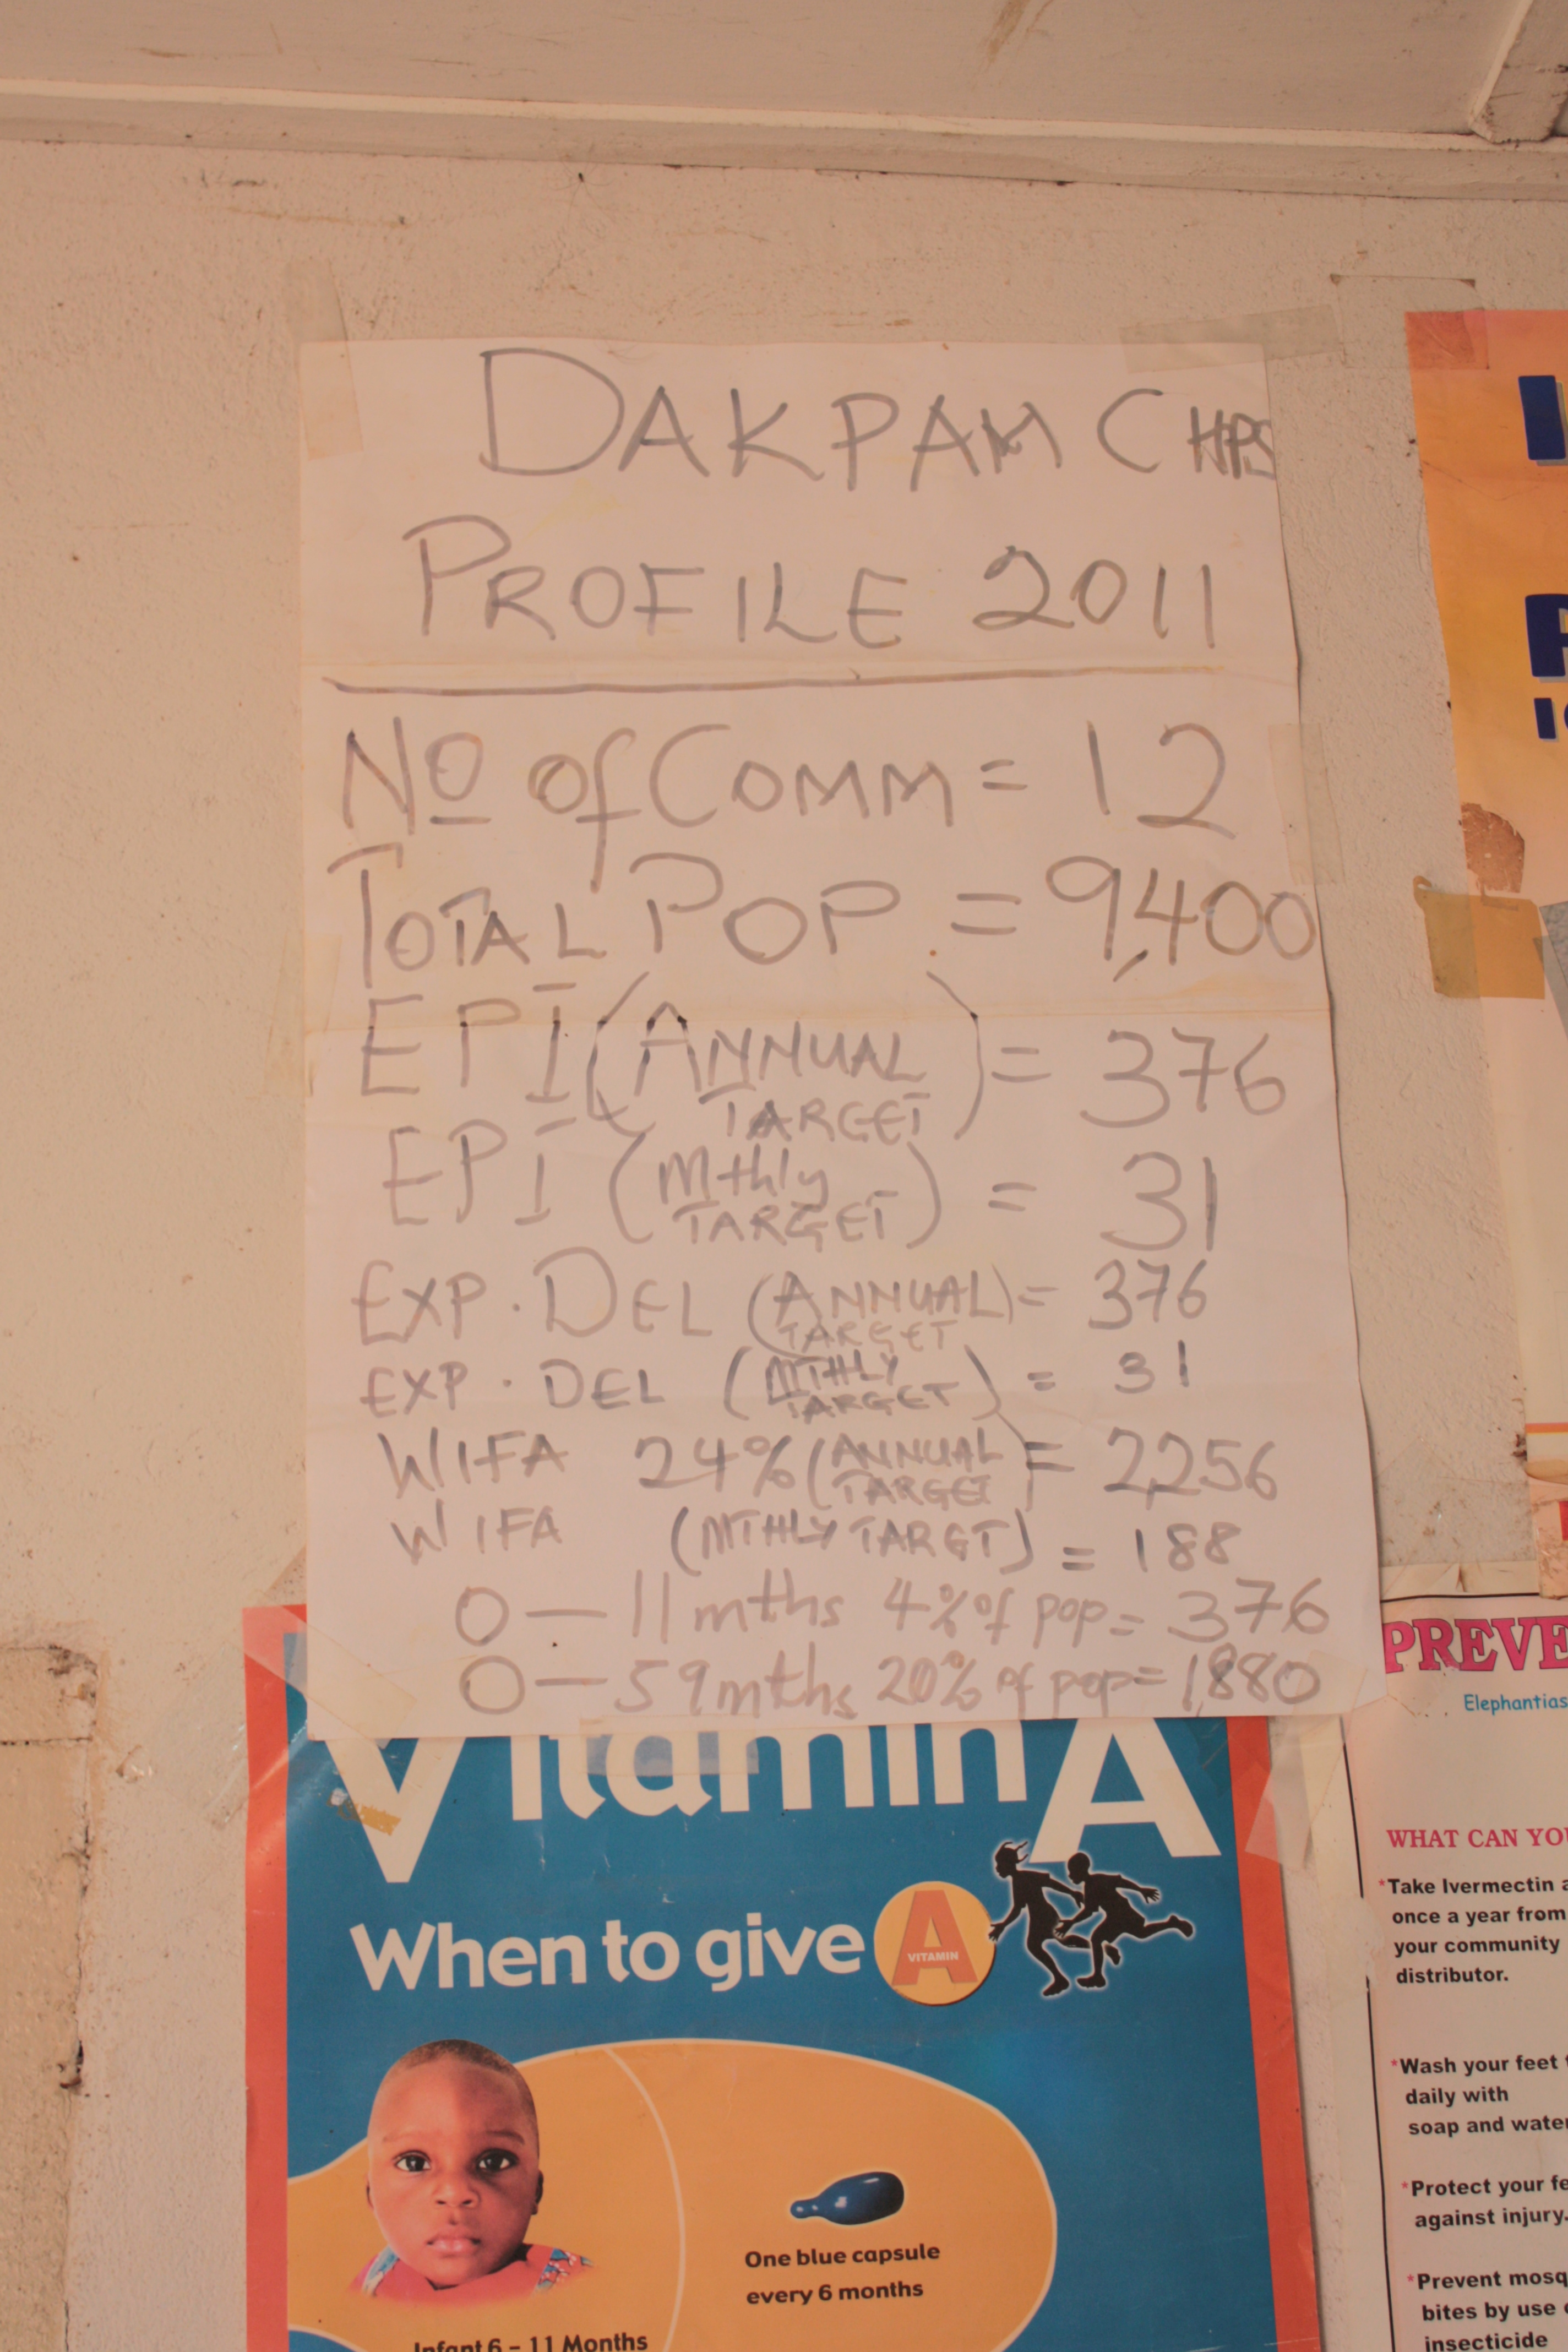 DAKPAM CHPS
PROFILE 2011
No of COMM = 12
TOTAL POP. = 9,400
EPI (ANNUAL TARGET) = 376
EPI (Mthly TARGET) = 31
EXP. DEL (ANNUAL TARGET) = 376
EXP. DEL (MTHLY TARGET) = 31
WIFA 24% (ANNUAL TARGET) = 2,256
WIFA (MTHLY TARGT) = 188
0 — 11 mths 4% of pop = 376
0 — 59 mths 20% of pop = 1,880
Vitamin A
When to give A
VITAMIN
One blue capsule
every 6 months
Infant 6 - 11 Months
PREVE
Elephantias
WHAT CAN YOU
*Take Ivermectin a
once a year from
your community
distributor.
*Wash your feet
daily with
soap and water
*Protect your fe
against injury.
*Prevent mosq
bites by use
insecticide